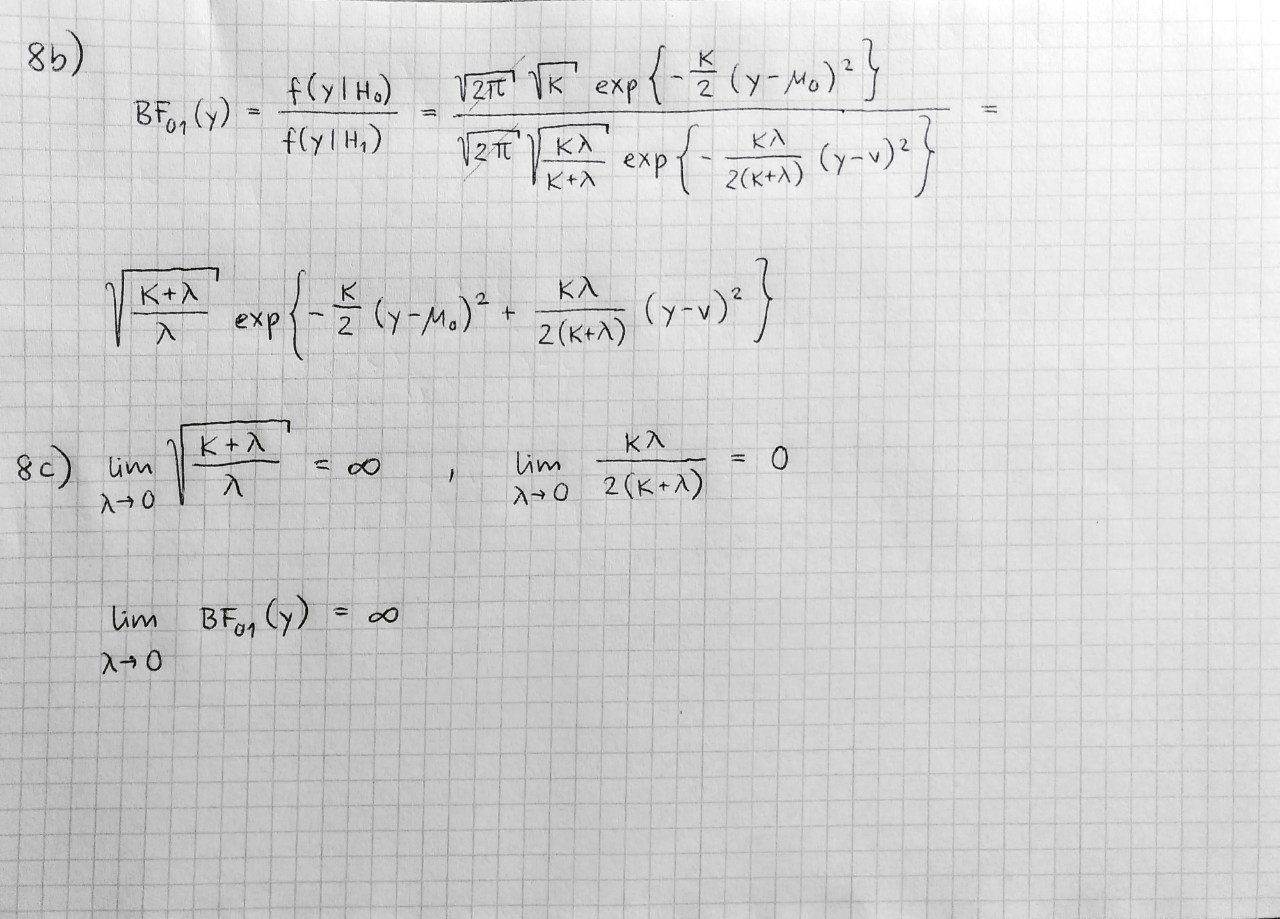 8b)
BF₀₁(y) = f(y|H₀) / f(y|H₁) = √2π √κ exp{-κ/2 (y-μ₀)²} / √2π √(κλ/(κ+λ)) exp{-κλ/2(κ+λ) (y-ν)²} =
√((κ+λ)/λ) exp{-κ/2 (y-μ₀)² + κλ/2(κ+λ) (y-ν)²}
8c) lim λ→0 √((κ+λ)/λ) = ∞ , lim λ→0 κλ/2(κ+λ) = 0
lim λ→0 BF₀₁(y) = ∞